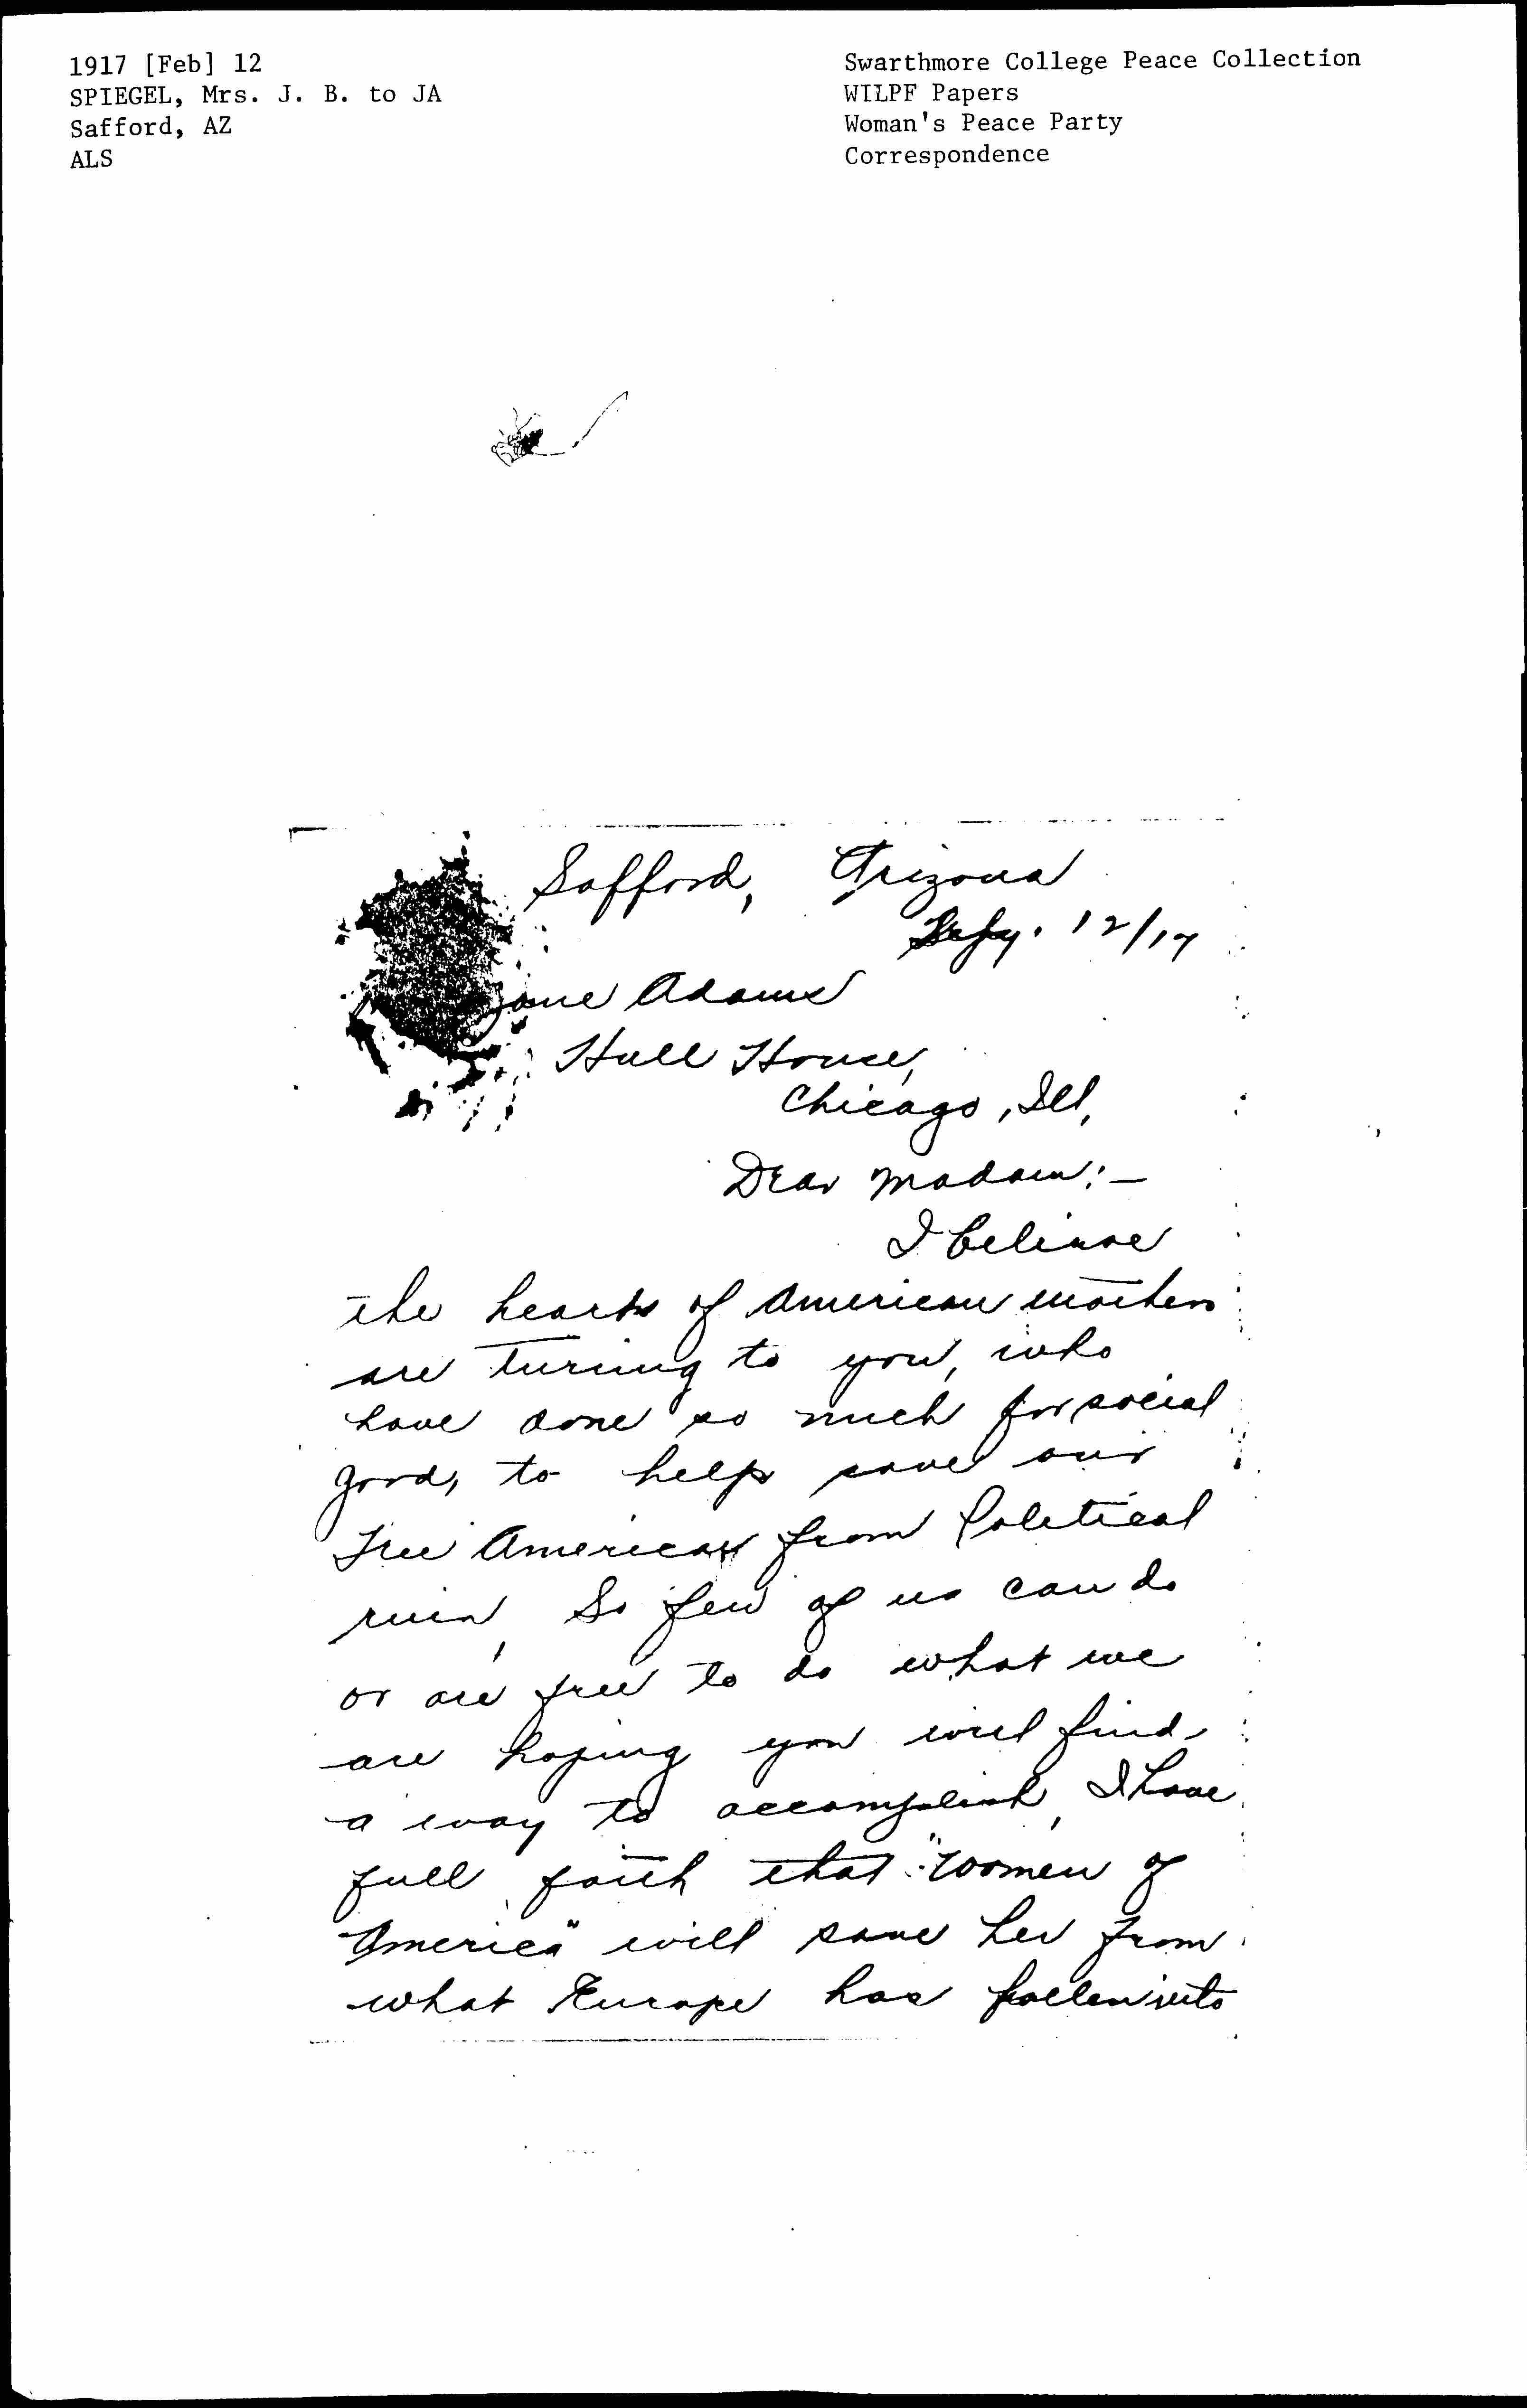 1917 [Feb] 12
SPIEGEL, Mrs. J. B. to JA
Safford, AZ
ALS
Swarthmore College Peace Collection
WILPF Papers
Woman's Peace Party
Correspondence
Safford, Arizona
12/17
Jane Adams
Hull House,
Chicago, Ill,
Dear Madam:—
I believe
the hearts of American mothers
are turning to you, who
have done so much for social
good, to help save our
free America from Political
ruin, So few of us can do
or are free to do what we
are hoping you will find
a way to accomplish, I have
full faith that "women of
America" will save her from
what Europe has fallen into